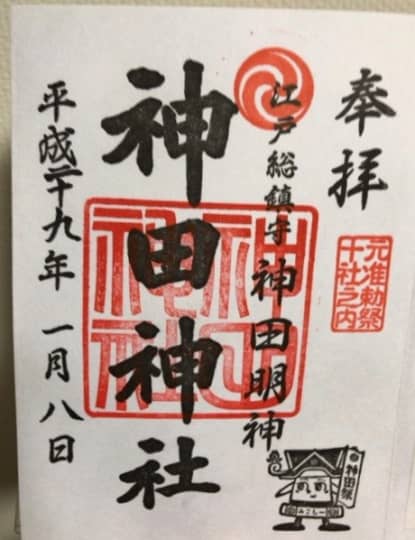 奉拝
元准勅祭
十社之内
江戸総鎮守 神田明神
神田神社
神田神社
平成二十九年 一月八日
神田祭
みこしー